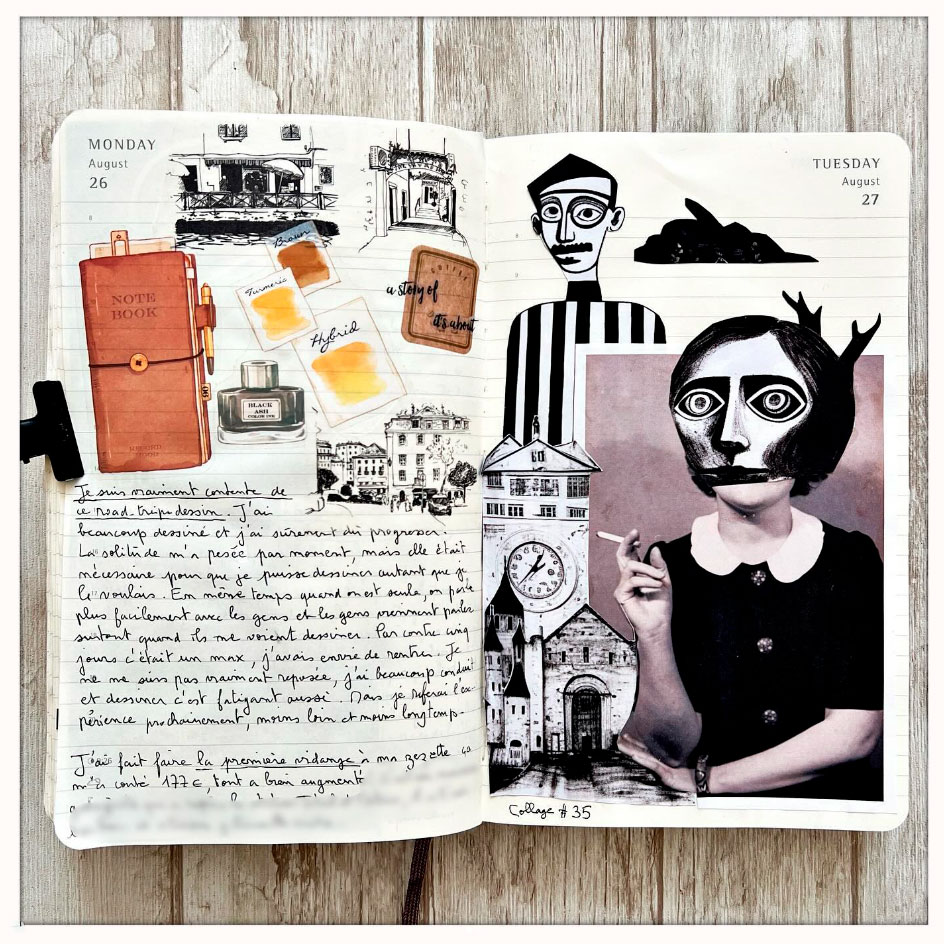 MONDAY
August
26
8
Brown
Turmeric
Hybrid
COFFEE
a story of
it's about
NOTE
BOOK
BLACK
ASH
COLOR INK
Je suis vraiment contente de
ce road-trip dessin. J'ai
beaucoup dessiné et j'ai sûrement dû progresser.
La solitude m'a pesée par moment, mais elle était
nécessaire pour que je puisse dessiner autant que je
le voulais. En même temps quand on est seule, on parle
plus facilement avec les gens et les gens viennent parler
surtout quand ils me voient dessiner. Par contre cinq
jours c'était un max, j'avais envie de rentrer. Je
ne me suis pas vraiment reposée, j'ai beaucoup conduit
et dessiner c'est fatigant aussi. Mais je referai l'ex-
périence prochainement, moins loin et moins longtemps.
J'ai fait faire la première vidange à ma zezette
m'a coûté 177€, tout a bien augmenté
TUESDAY
August
27
8
9
Collage #35